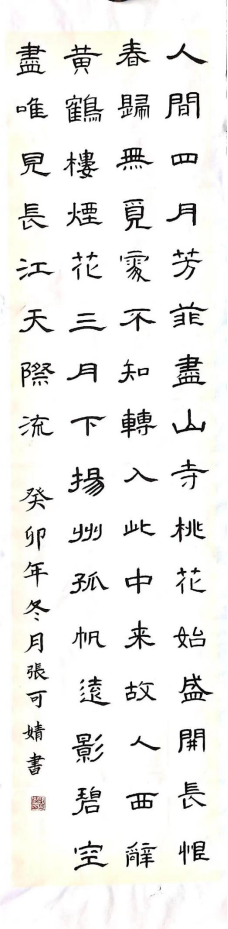 人間四月芳菲盡山寺桃花始盛開長恨
春歸無覓處不知轉入此中来故人西辭
黄鶴樓煙花三月下揚州孤帆遠影碧空
盡唯見長江天際流
癸卯年冬月張可婧書